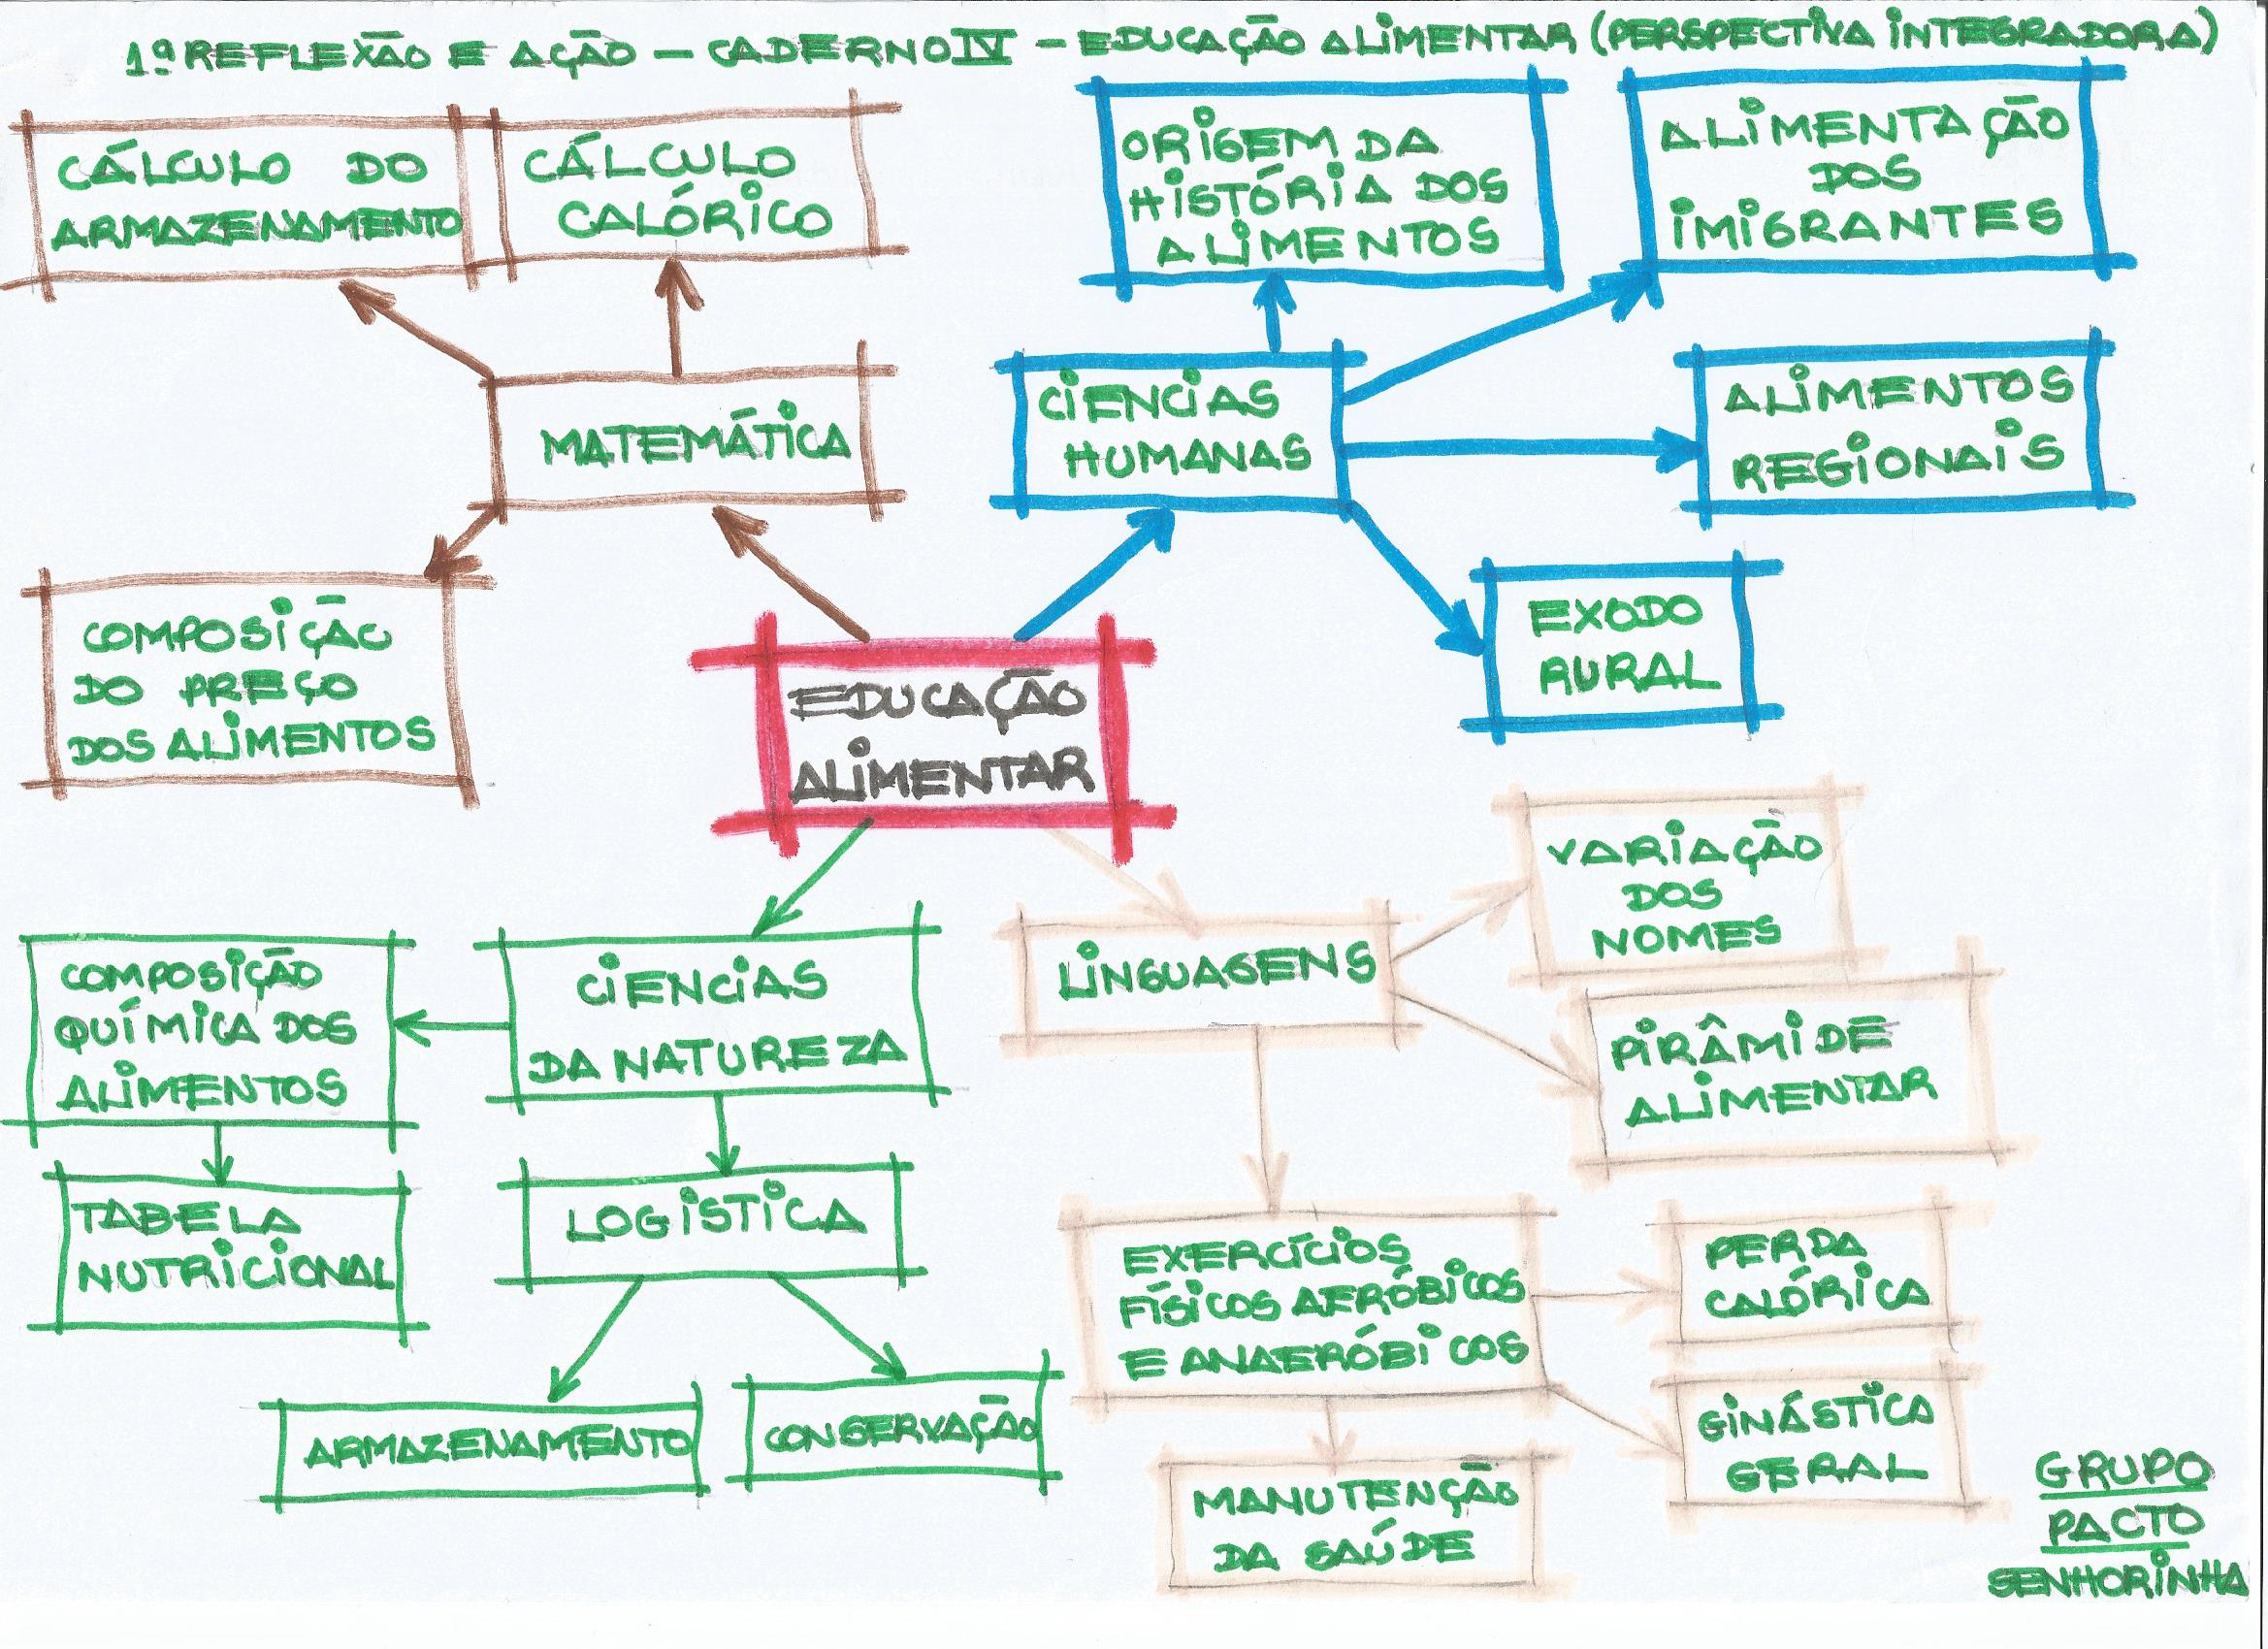 1ª REFLEXÃO E AÇÃO – CADERNO IV – EDUCAÇÃO ALIMENTAR (PERSPECTIVA INTEGRADORA)
CÁLCULO DO
ARMAZENAMENTO
CÁLCULO
CALÓRICO
ORIGEM DA
HISTÓRIA DOS
ALIMENTOS
ALIMENTAÇÃO
DOS
IMIGRANTES
MATEMÁTICA
CIENCIAS
HUMANAS
ALIMENTOS
REGIONAIS
COMPOSIÇÃO
DO PREÇO
DOS ALIMENTOS
EXODO
RURAL
EDUCAÇÃO
ALIMENTAR
VARIAÇÃO
DOS
NOMES
COMPOSIÇÃO
QUÍMICA DOS
ALIMENTOS
CIENCIAS
DA NATUREZA
LINGUAGENS
PIRÂMIDE
ALIMENTAR
TABELA
NUTRICIONAL
LOGISTICA
EXERCÍCIOS
FÍSICOS AERÓBICOS
E ANAERÓBICOS
PERDA
CALÓRICA
ARMAZENAMENTO
CONSERVAÇÃO
GINÁSTICA
GERAL
MANUTENÇÃO
DA SAÚDE
GRUPO
PACTO
SENHORINHA